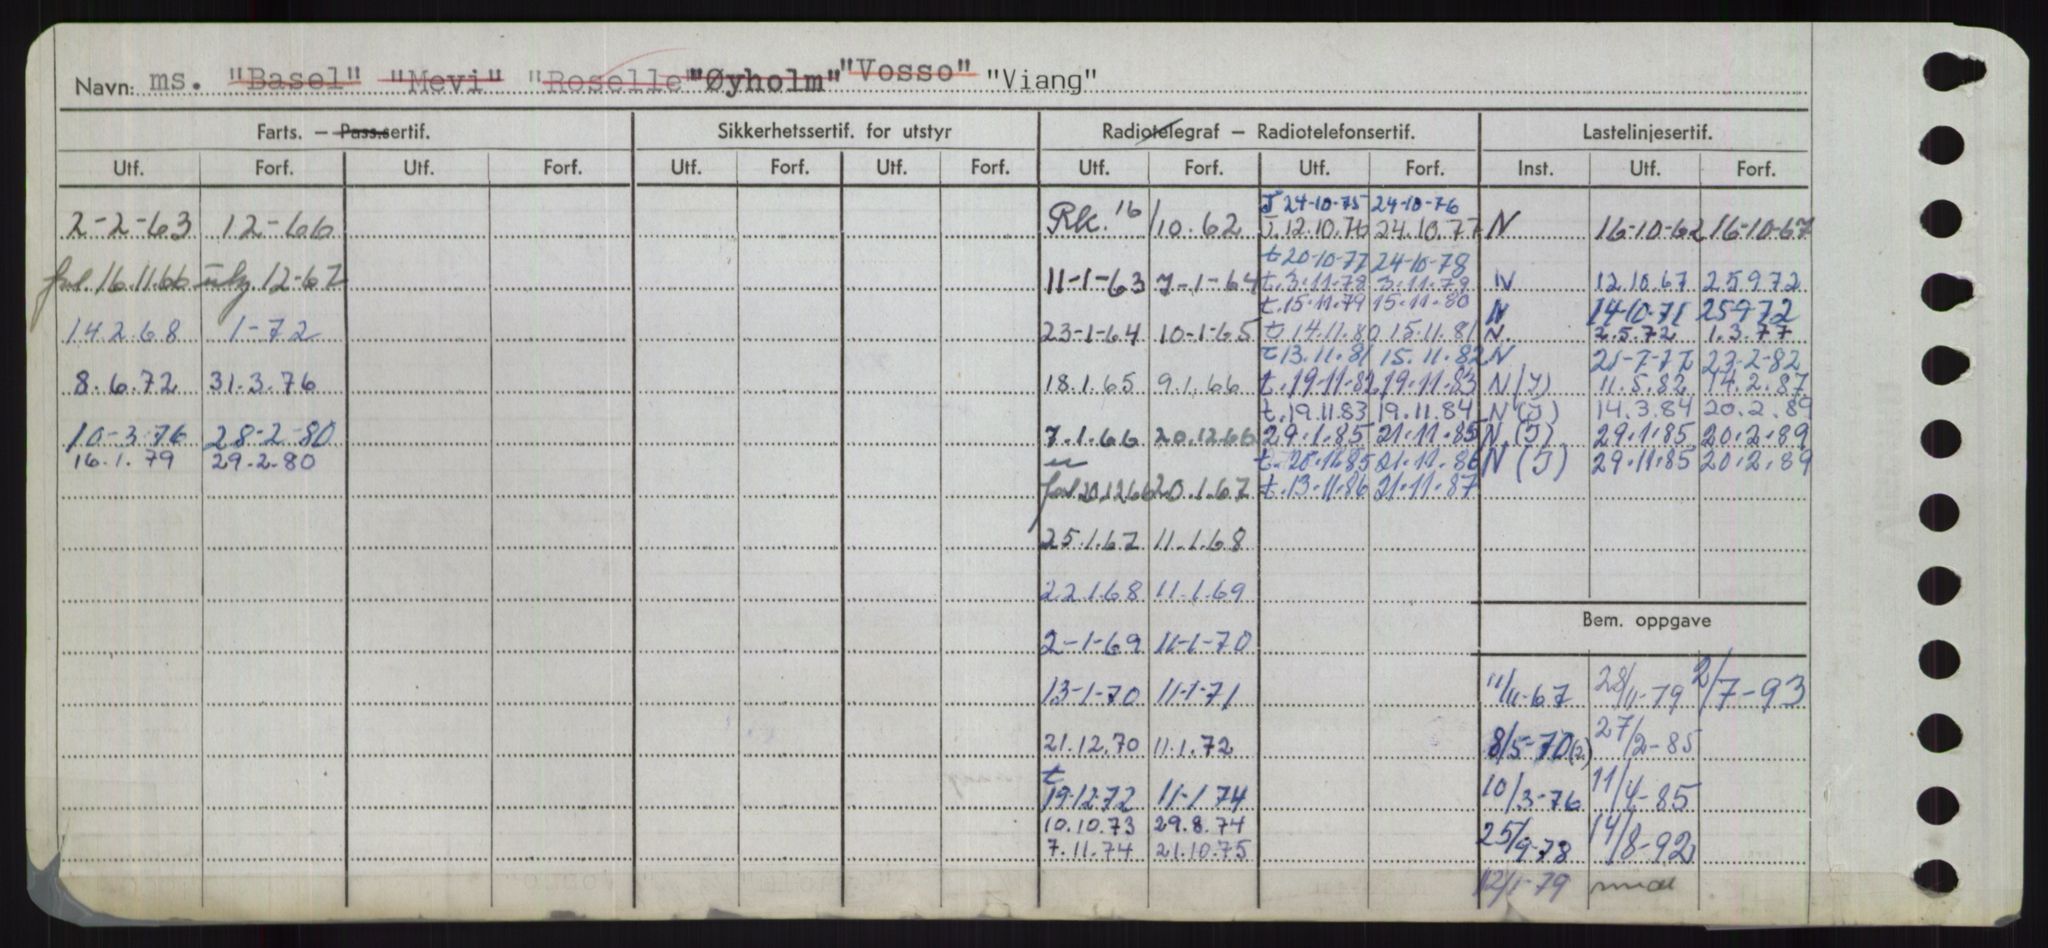 Navn: ms. "Basel" "Mevi" "Roselle" "Øyholm" "Vosso" "Viang"
Farts. — Pass.sertif. Sikkerhetssertif. for utstyr Radiotelegraf — Radiotelefonsertif. Lastelinjesertif.
Utf. Forf. Utf. Forf. Utf. Forf. Utf. Forf. Utf. Forf. Utf. Forf. Inst. Utf. Forf.
T 24-10-75 24-10-76
2-2-63 12-66 Rk. 16/10.62 T. 12.10.76 24.10.77 N 16-10-62 16-10-67
t 20-10-77 24-10-78
forl. 16.11.66 12-67 11-1-63 7-1-64 t. 3.11.78 3.11.79 N 12.10.67 25.9.72
t. 15.11.79 15.11.80 N 14-10-71 25-9-72
14.2.68 1-72 23-1-64 10-1-65 t. 14.11.80 15.11.81 N. 2.5.72 1.3.77
t 13.11.81 15.11.82 N 21-7-77 23-2-82
8.6.72 31.3.76 18.1.65 9.1.66 t. 19.11.82 19.11.83 N(J) 11.5.82 14.2.87
t. 19.11.83 19.11.84 N(J) 14.3.84 20.2.89
10-3-76 28-2-80 7.1.66 20.12.66 29.1.85 21.11.85 N.(J) 29.1.85 20.2.89
16.1.79 29.2.80 t. 20.11.85 21.11.86 N (J) 29.11.85 20.2.89
forl. 20.12.66 20.1.67 t. 13.11.86 21.11.87
25.1.67 11.1.68
22.1.68 11.1.69
Bem. oppgave
2-1-69 11-1-70
13-1-70 11-1-71 11/11-67 28/11-79 2/7-93
21.12.70 11.1.72 8/5-70(2) 27/2-85
t
19.12.72 11-1.74 10/3-76 11/4-85
10.10.73 29.8.74
7.11.74 21.10.75 25/9-78 14/8-92
12/1-79